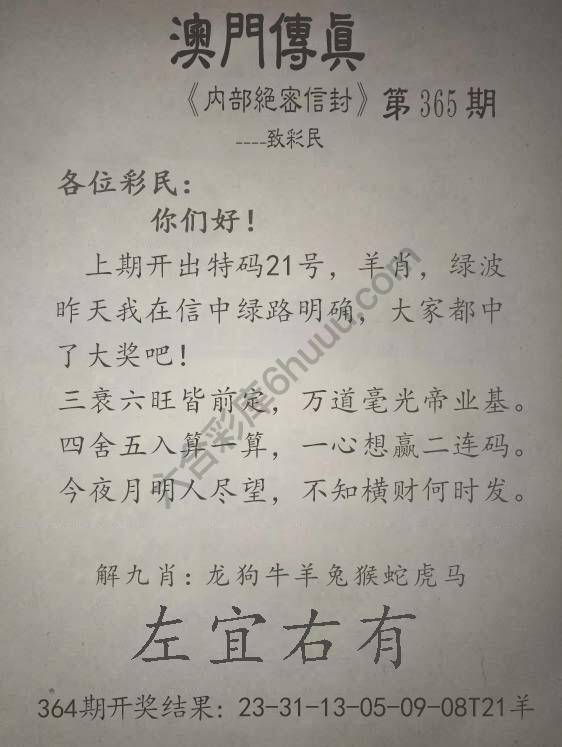 澳門傳眞
《内部絕密信封》第365期
----致彩民
各位彩民：
你们好！
上期开出特码21号，羊肖，绿波
昨天我在信中绿路明确，大家都中
了大奖吧！
三衰六旺皆前定，万道毫光帝业基。
四舍五入算一算，一心想赢二连码。
今夜月明人尽望，不知横财何时发。
解九肖：龙狗牛羊兔猴蛇虎马
左宜右有
364期开奖结果：23-31-13-05-09-08T21羊
六合彩库6huuu.com